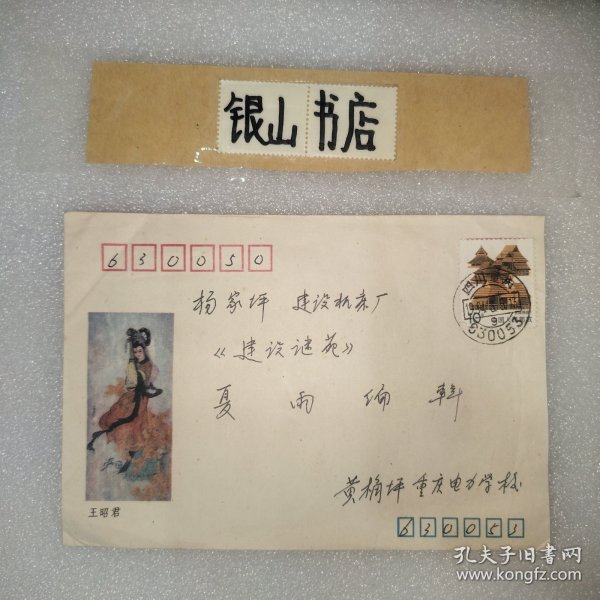 银山书店
630050
杨家坪 建设机床厂
《建设谜苑》
夏雨编辑
黄桷坪 重庆电力学校
630053
王昭君
四川
630053
孔夫子旧书网
www.kongfz.com